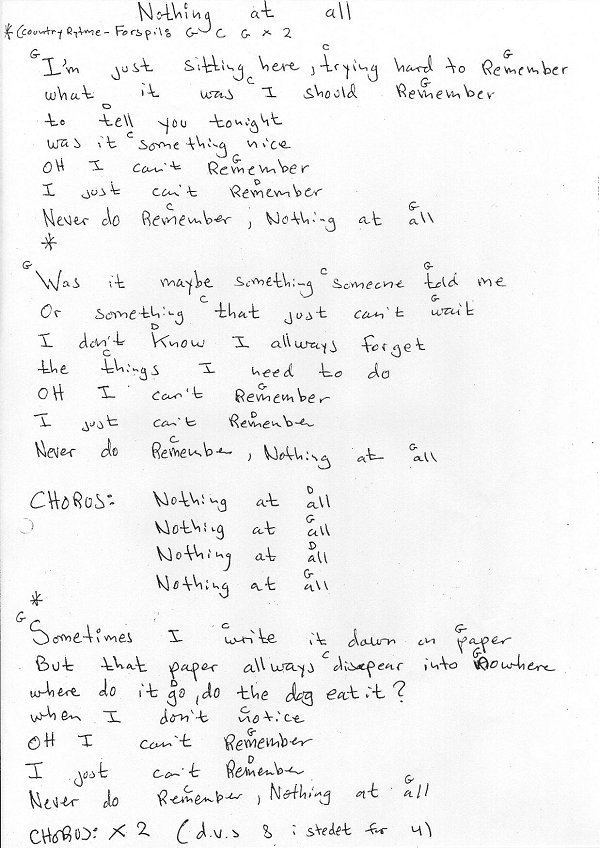 Nothing at all
*(country Rytme - Forspil: G C G x 2
G C G
I'm just sitting here, trying hard to Remember
C G
what it was I should Remember
D
to tell you tonight
C
was it something nice
G
OH I can't Remember
D
I just can't Remember
C G
Never do Remember, Nothing at all
*
G C G
Was it maybe something someone told me
C G
Or something that just can't wait
D
I don't know I allways forget
C
the things I need to do
G
OH I can't Remember
D
I just can't Remember
C G
Never do Remember, Nothing at all
D
CHORUS: Nothing at all
G
Nothing at all
D
Nothing at all
G
Nothing at all
*
G C G
Sometimes I write it down on paper
C G
But that paper allways disepear into Nowhere
D
where do it go, do the dog eat it?
C
when I don't notice
G
OH I can't Remember
D
I just can't Remember
C G
Never do Remember, Nothing at all
CHORUS: X 2 (d.v.s 8 i stedet for 4)